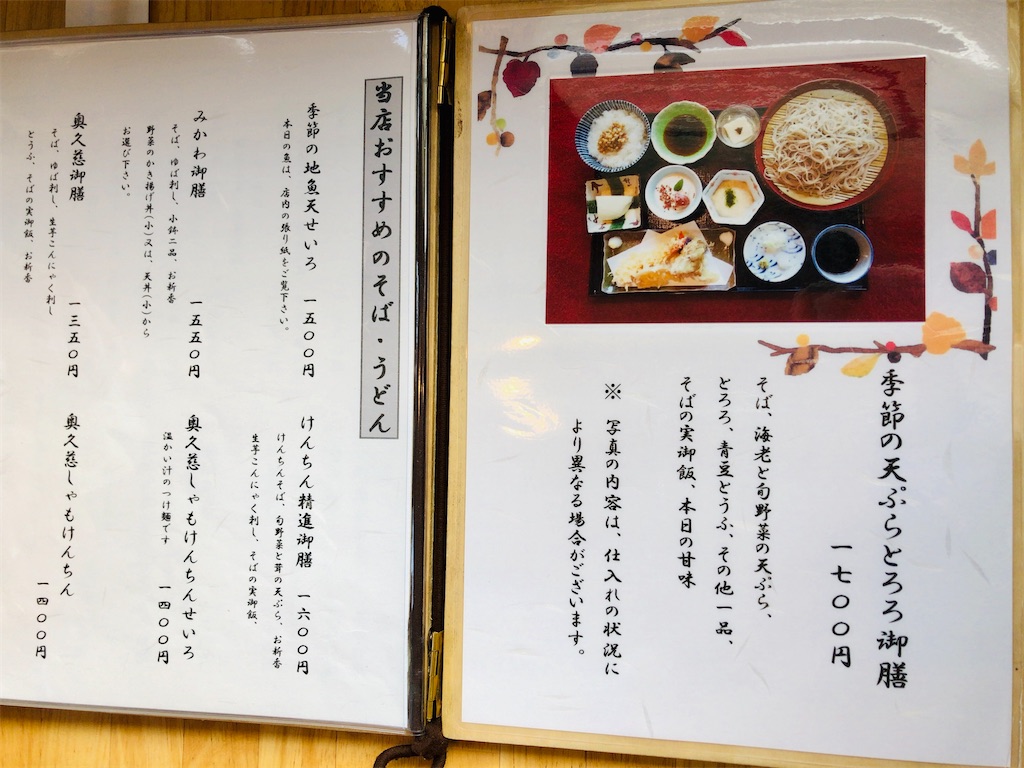 季節の天ぷらとろろ御膳
一七〇〇円
そば、海老と旬野菜の天ぷら、
とろろ、青豆とうふ、その他一品、
そばの実御飯、本日の甘味
※ 写真の内容は、仕入れの状況に
より異なる場合がございます。
当店おすすめのそば・うどん
季節の地魚天せいろ 一五〇〇円
本日の魚は、店内の張り紙をご覧下さい。
みかわ御膳 一五五〇円
そば、ゆば刺し、小鉢二品、お新香
野菜のかき揚げ丼(小)又は、天丼(小)から
お選び下さい。
奥久慈御膳 一三五〇円
そば、ゆば刺し、生芋こんにゃく刺し
とうふ、そばの実御飯、お新香
けんちん精進御膳 一六〇〇円
けんちんそば、旬野菜と茸の天ぷら、お新香
生芋こんにゃく刺し、そばの実御飯、
奥久慈しゃもけんちんせいろ 一四〇〇円
温かい汁のつけ麺です
奥久慈しゃもけんちん 一四〇〇円